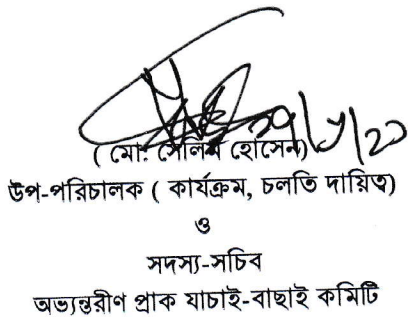 ( মোঃ সেলিম হোসেন)
উপ-পরিচালক ( কার্যক্রম, চলতি দায়িত্ব)
ও
সদস্য-সচিব
অভ্যন্তরীণ প্রাক যাচাই-বাছাই কমিটি